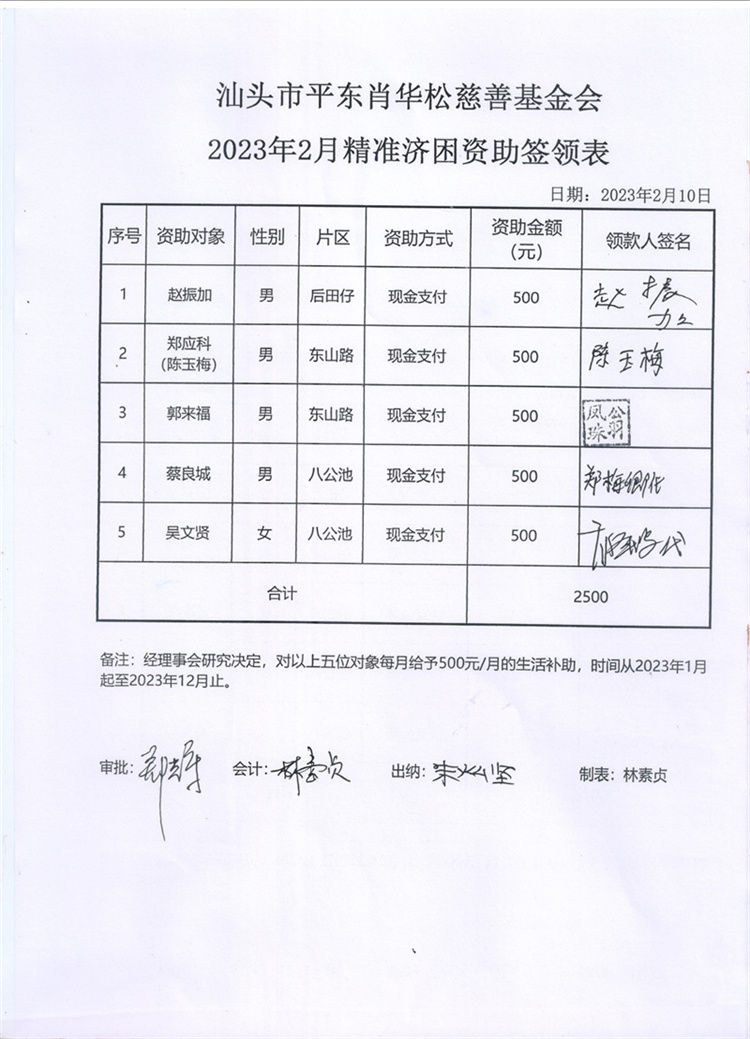 汕头市平东肖华松慈善基金会
2023年2月精准济困资助签领表
日期：2023年2月10日
序号 资助对象 性别 片区 资助方式 资助金额（元） 领款人签名
1 赵振加 男 后田仔 现金支付 500 赵振加
2 郑应科（陈玉梅） 男 东山路 现金支付 500 陈玉梅
3 郭来福 男 东山路 现金支付 500
4 蔡良城 男 八公池 现金支付 500
5 吴文贤 女 八公池 现金支付 500
合计 2500
备注：经理事会研究决定，对以上五位对象每月给予500元/月的生活补助，时间从2023年1月
起至2023年12月止。
审批： 会计：林素贞 出纳： 制表：林素贞